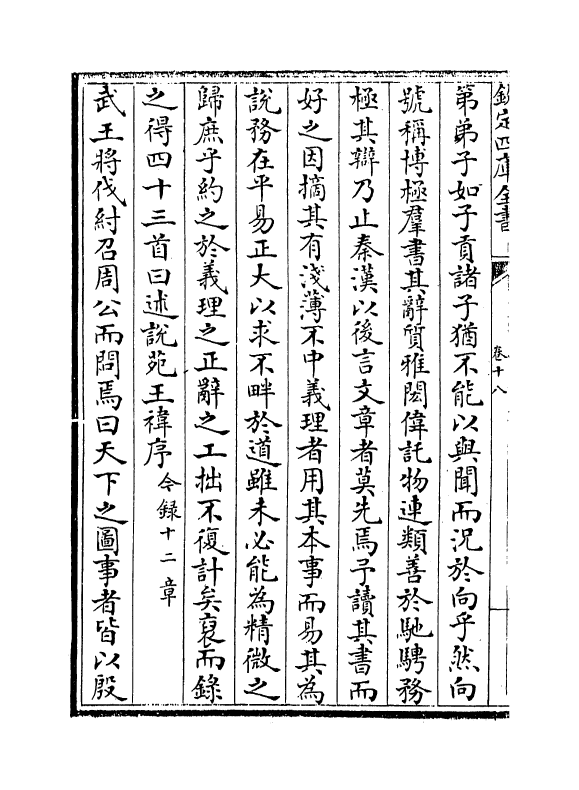 欽定四庫全書
卷十八
第弟子如子貢諸子猶不能以與聞而況於向乎然向
號稱博極羣書其辭質雅閎偉託物連類善於馳騁務
極其辯乃止秦漢以後言文章者莫先焉予讀其書而
好之因摘其有淺薄不中義理者用其本事而易其為
說務在平易正大以求不畔於道雖未必能為精微之
歸庶乎約之於義理之正辭之工拙不復計矣裒而錄
之得四十三首曰述說苑王禕序今録十二章
武王將伐紂召周公而問焉曰天下之圖事者皆以殷